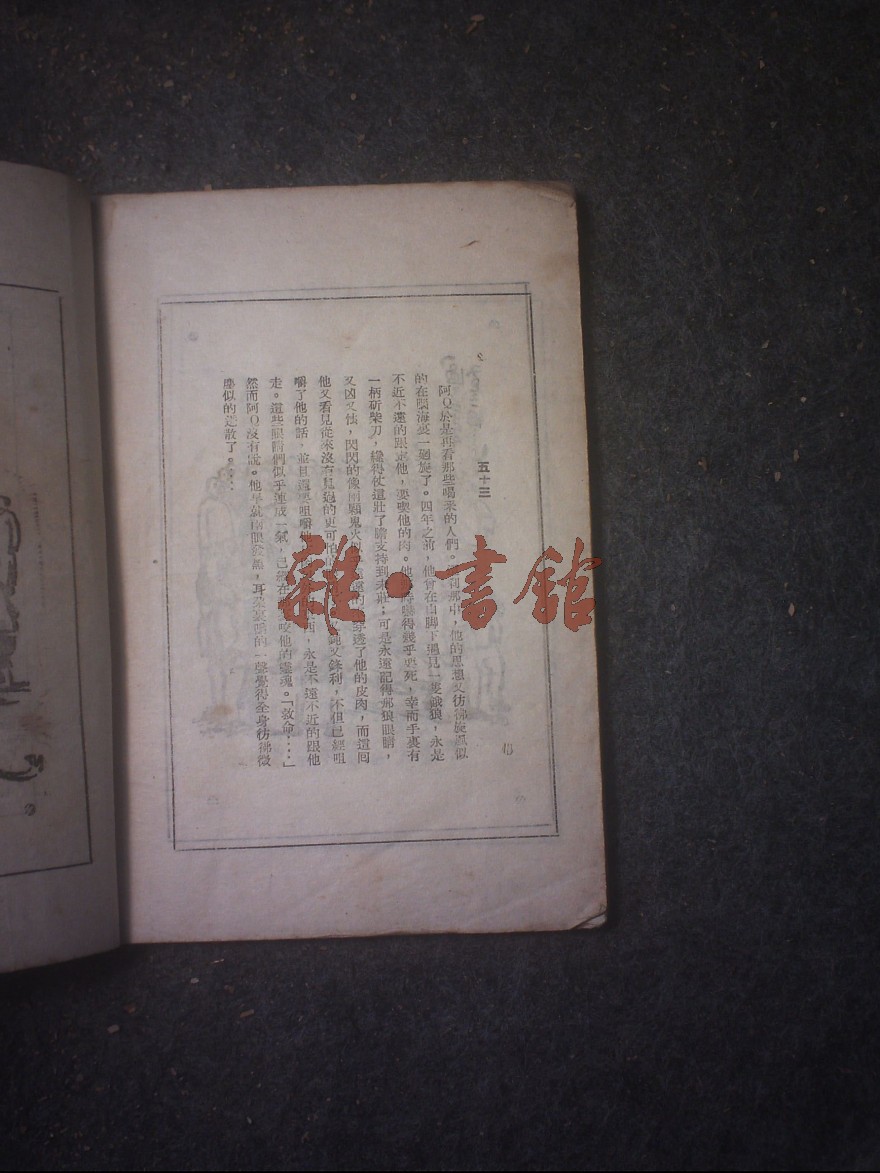 五十三
阿Q於是再看那些喝采的人們。刹那中，他的思想又彷彿旋風似
的在腦海裏一廻旋了。四年之前，他曾在山脚下遇見一隻餓狼，永是
不近不遠的跟定他，要喫他的肉。他那時嚇得幾乎要死，幸而手裏有
一柄斫柴刀，纔得仗這壯了膽支持到未莊；可是永遠記得那狼眼睛，
又凶又怯，閃閃的像兩顆鬼火似遠的穿透了他的皮肉，而這回
他又看見從來沒有見過的更可怕鈍又鋒利，不但已經咀
嚼了他的話，並且還要咀嚼他西，永是不遠不近的跟他
走。這些眼睛們似乎連成一氣，已經在咬他的靈魂。「救命....」
然而阿Q沒有說。他早就兩眼發黑，耳朶裏嗡的一聲覺得全身彷彿微
塵似的迸散了。....
雜·書館